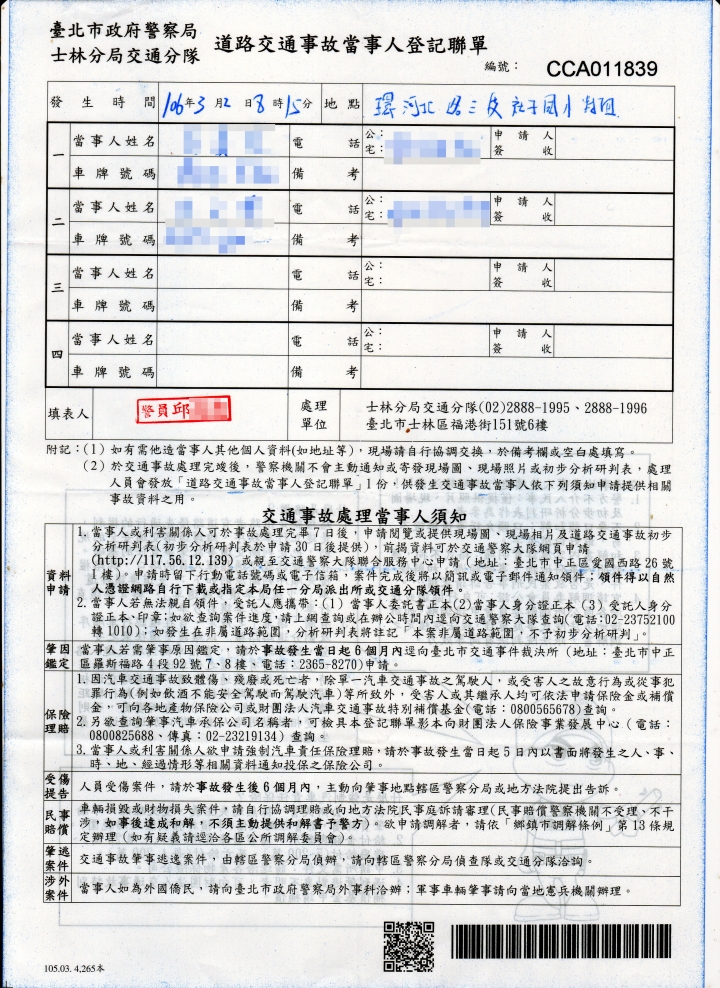 臺北市政府警察局
士林分局交通分隊
道路交通事故當事人登記聯單
編號： CCA011839
發生時間 106年3月2日8時15分 地點 環河北路三段社子國小對面
一 當事人姓名 電話 公： 宅： 申請人簽收
車牌號碼 備考
二 當事人姓名 電話 公： 宅： 申請人簽收
車牌號碼 備考
三 當事人姓名 電話 公： 宅： 申請人簽收
車牌號碼 備考
四 當事人姓名 電話 公： 宅： 申請人簽收
車牌號碼 備考
填表人 警員邱 處理單位 士林分局交通分隊(02)2888-1995、2888-1996
臺北市士林區福港街151號6樓
附記：(1) 如有需他造當事人其他個人資料(如地址等)，現場請自行協調交換，於備考欄或空白處填寫。
(2) 於交通事故處理完竣後，警察機關不會主動通知或寄發現場圖、現場照片或初步分析研判表，處理
人員會發放「道路交通事故當事人登記聯單」1份，供發生交通事故當事人依下列須知申請提供相關
事故資料之用。
交通事故處理當事人須知
資料申請
1. 當事人或利害關係人可於事故處理完畢7日後，申請閱覽或提供現場圖、現場相片及道路交通事故初步
分析研判表(初步分析研判表於申請30日後提供)，前揭資料可於交通警察大隊網頁申請
(http://117.56.12.139) 或親至交通警察大隊聯合服務中心申請 (地址：臺北市中正區愛國西路26號
1樓)。申請時留下行動電話號碼或電子信箱，案件完成後將以簡訊或電子郵件通知領件；領件得以自然
人憑證網路自行下載或指定本局任一分局派出所或交通分隊領件。
2. 當事人若無法親自領件，受託人應攜帶：(1) 當事人委託書正本(2)當事人身分證正本 (3) 受託人身分
證正本、印章；如欲查詢案件進度，請上網查詢或在辦公時間內逕向交通警察大隊查詢(電話：02-23752100
轉1010)；如發生在非屬道路範圍，分析研判表將註記「本案非屬道路範圍，不予初步分析研判」。
肇因鑑定
當事人若需肇事原因鑑定，請於事故發生當日起6個月內逕向臺北市交通事件裁決所 (地址：臺北市中正
區羅斯福路4段92號7、8樓、電話：2365-8270)申請。
保險理賠
1. 因汽車交通事故致體傷、殘廢或死亡，除單一汽車交通事故之駕駛人，或受害人之故意行為或從事犯
罪行為(例如飲酒不能安全駕駛而駕駛汽車)等所致外，受害人或其繼承人均可依法申請保險金或補償
金，可向各地產物保險公司或財團法人汽車交通事故特別補償基金(電話：0800565678)查詢。
2. 另欲查詢肇事汽車承保公司名稱者，可檢具本登記聯單影本向財團法人保險事業發展中心 (電話：
0800825688、傳真：02-23219134) 查詢。
3. 當事人或利害關係人欲申請強制汽車責任保險理賠，請於事故發生當日起5日內以書面將發生之人、事、
時、地、經過情形等相關資料通知投保之保險公司。
受傷提告
人員受傷案件，請於事故發生後6個月內，主動向肇事地點轄區警察分局或地方法院提出告訴。
民事賠償
車輛損毀或財物損失案件，請自行協調理賠或向地方法院民事庭訴請審理(民事賠償警察機關不受理、不干
涉，如事後達成和解，不須主動提供和解書予警方)。欲申請調解者，請依「鄉鎮市調解條例」第13條規
定辦理 (如有疑義請逕洽各區公所調解委員會)。
肇逃案件
交通事故肇事逃逸案件，由轄區警察分局偵辦，請向轄區警察分局偵查隊或交通分隊洽詢。
涉外案件
當事人如為外國僑民，請向臺北市政府警察局外事科洽辦；軍事車輛肇事請向當地憲兵機關辦理。
105.03. 4,265本